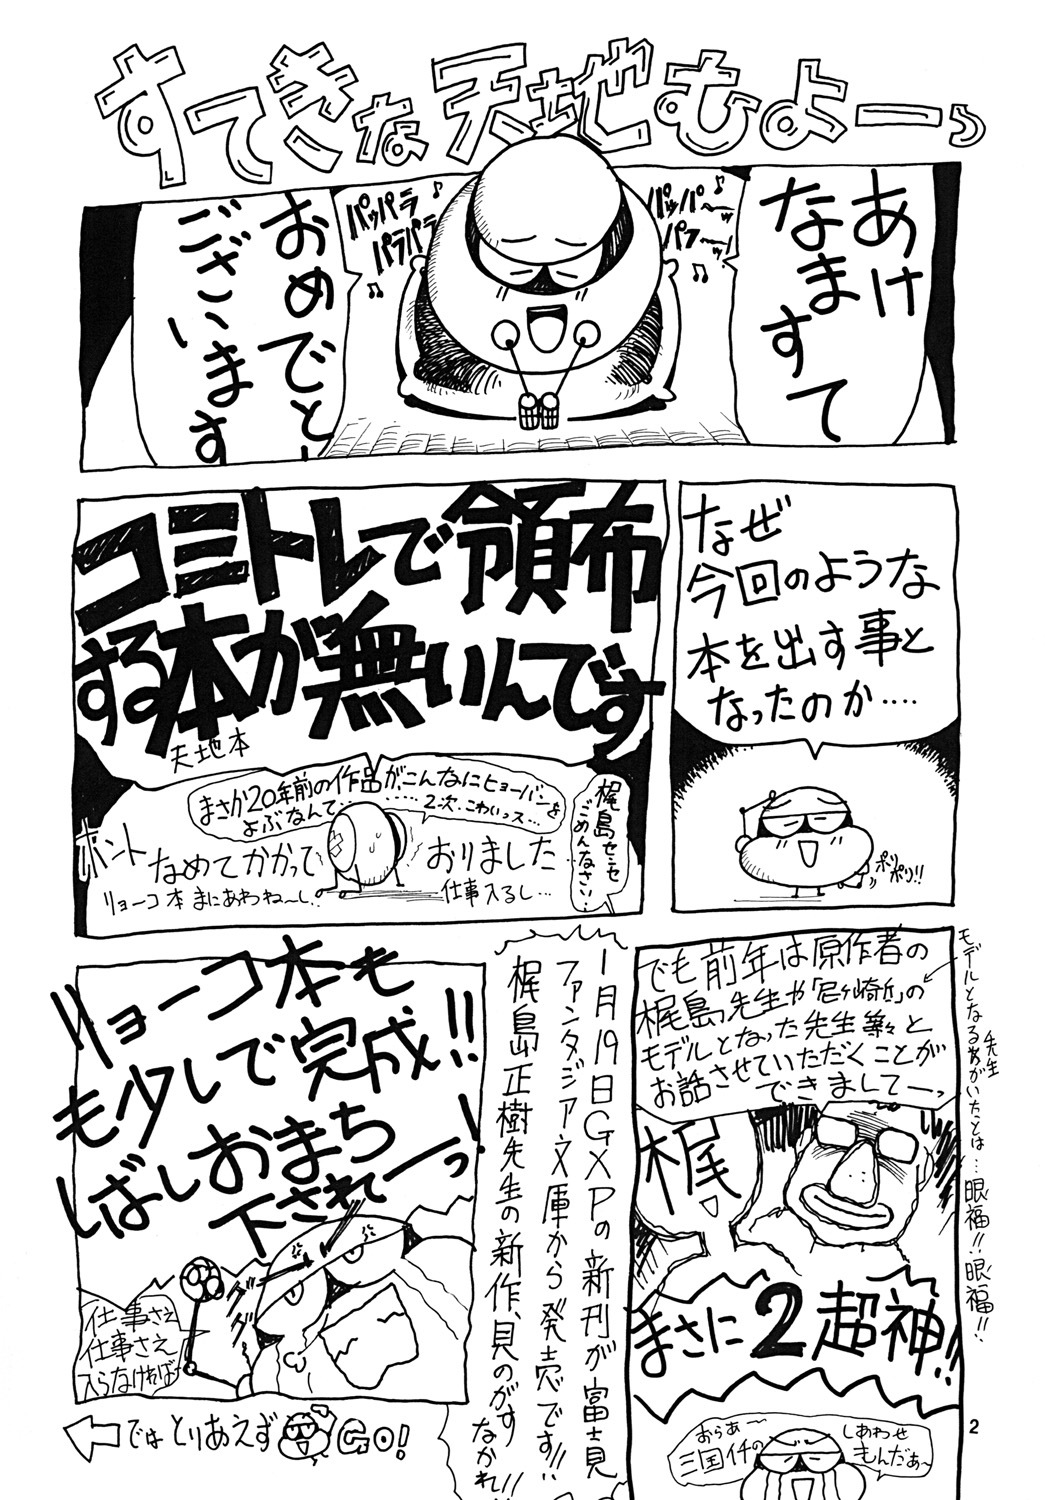 すてきな天地むよーっ
あけ
なまして
おめでとー
ございます
パッパー〜w
パフ〜ッ!
パッパラ
パラパラ
なぜ
今回のような
本を出す事と
なったのか‥‥
ポリ
ポリ!!
コミトレで領布
する本が無いんです
天地本
まさか20年前の作品が、こんなにヒョーバンを
よぶなんて‥‥‥‥2次・こわいっス…
梶島センセ
ごめんなさい‥
ホント
なめてかかって
おりました
リョーコ本まにあわね〜し‥
仕事入るし…
でも前年は原作者の
梶島先生や「尼ヶ崎近」の
モデルとなった先生等々と
お話させていただくことが
できましてーっ
モデルとなるあがいたことは…眼福!!眼福!!
先生
梶
まさに2超神!!
おらあ〜
三国イチの
しあわせ
もんだあ〜
1月19日GXPの新刊が富士見
ファンタジア文庫から発売です!!
梶島正樹先生の新作、見のがす
なかれ!!
リョーコ本も
も少しで完成!!
しばしおまち
下されーっ!
仕事さえ
仕事さえ
入らなければ
では とりあえず
GO!
2